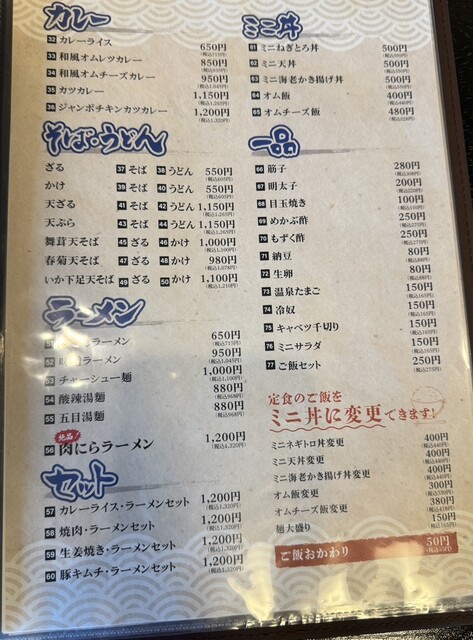 カレー
32 カレーライス 650円 (税込715円)
33 和風オムレツカレー 850円
34 和風オムチーズカレー 950円
35 カツカレー 1,150円
36 ジャンボチキンカツカレー 1,200円 (税込1,320円)
そば・うどん
ざる 37 そば 38 うどん 550円 (税込605円)
かけ 39 そば 40 うどん 550円 (税込605円)
天ざる 41 そば 42 うどん 1,150円 (税込1,265円)
天ぷら 43 そば 44 うどん 1,150円 (税込1,265円)
舞茸天そば 45 ざる 46 かけ 1,000円 (税込1,100円)
春菊天そば 47 ざる 48 かけ 980円 (税込1,078円)
いか下足天そば 49 ざる 50 かけ 1,100円 (税込1,210円)
ラーメン
ラーメン 650円 (税込715円)
52 ラーメン 950円 (税込1,045円)
53 チャーシュー麺 1,000円 (税込1,100円)
54 酸辣湯麺 880円 (税込968円)
55 五目湯麺 880円 (税込968円)
絶品!
56 肉にらラーメン 1,200円 (税込1,320円)
セット
57 カレーライス・ラーメンセット 1,200円 (税込1,320円)
58 焼肉・ラーメンセット 1,200円 (税込1,320円)
59 生姜焼き・ラーメンセット 1,200円 (税込1,320円)
60 豚キムチ・ラーメンセット 1,200円 (税込1,320円)
ミニ丼
61 ミニねぎとろ丼 500円 (税込550円)
62 ミニ天丼 500円 (税込550円)
63 ミニ海老かき揚げ丼 500円 (税込550円)
64 オム飯 400円 (税込440円)
65 オムチーズ飯 480円 (税込528円)
一品
66 筋子 280円 (税込308円)
67 明太子 200円 (税込220円)
68 目玉焼き 100円
69 めかぶ酢 250円 (税込275円)
70 もずく酢 250円 (税込275円)
71 納豆 80円 (税込88円)
72 生卵 80円 (税込88円)
73 温泉たまご 150円 (税込165円)
74 冷奴 150円 (税込165円)
75 キャベツ千切り 150円 (税込165円)
76 ミニサラダ 150円 (税込165円)
77 ご飯セット 250円 (税込275円)
定食のご飯を
ミニ丼に変更できます!
ミニネギトロ丼変更 400円 (税込440円)
ミニ天丼変更 400円 (税込440円)
ミニ海老かき揚げ丼変更 400円 (税込440円)
オム飯変更 300円 (税込330円)
オムチーズ飯変更 380円 (税込418円)
麺大盛り 150円 (税込165円)
ご飯おかわり 50円 (税込55円)